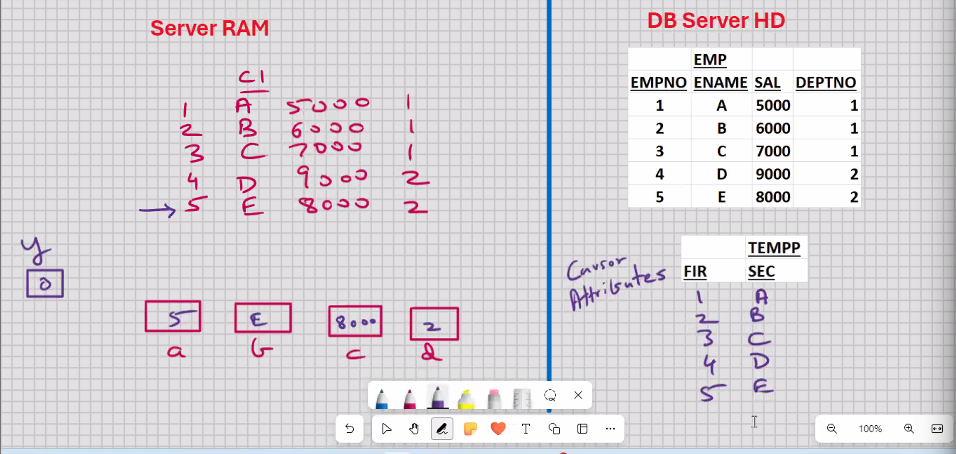 Server RAM
C1
1 A 5000 1
2 B 6000 1
3 C 7000 1
4 D 9000 2
5 E 8000 2
y
0
5 E 8000 2
a b c d
DB Server HD
EMP
EMPNO ENAME SAL DEPTNO
1 A 5000 1
2 B 6000 1
3 C 7000 1
4 D 9000 2
5 E 8000 2
Cursor
Attributes
TEMPP
FIR SEC
1 A
2 B
3 C
4 D
5 E
100%